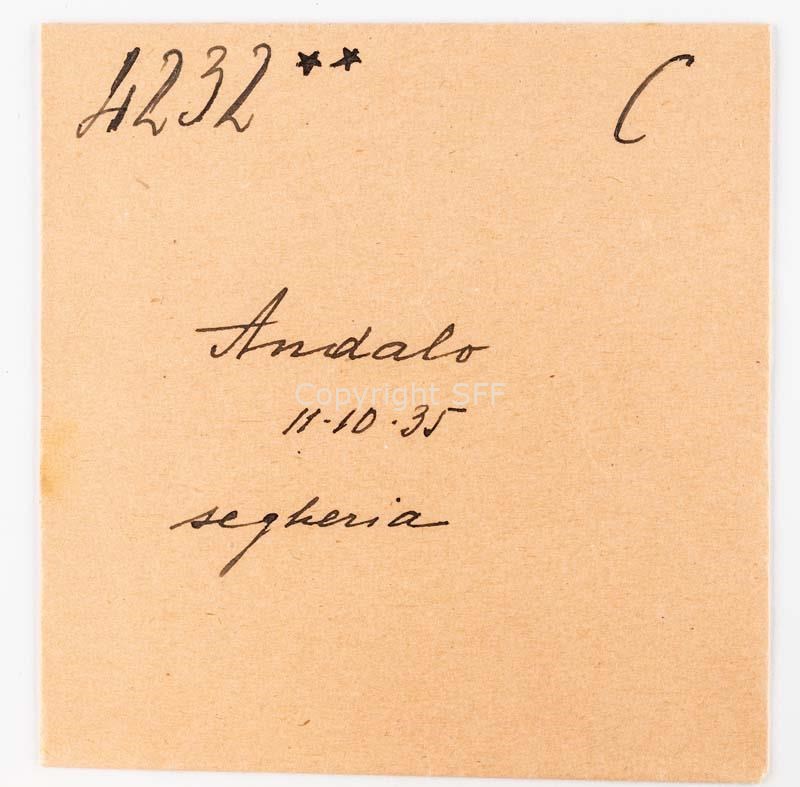 4232 ** C
Andalo
Copyright SFF
11-10.35
segheria